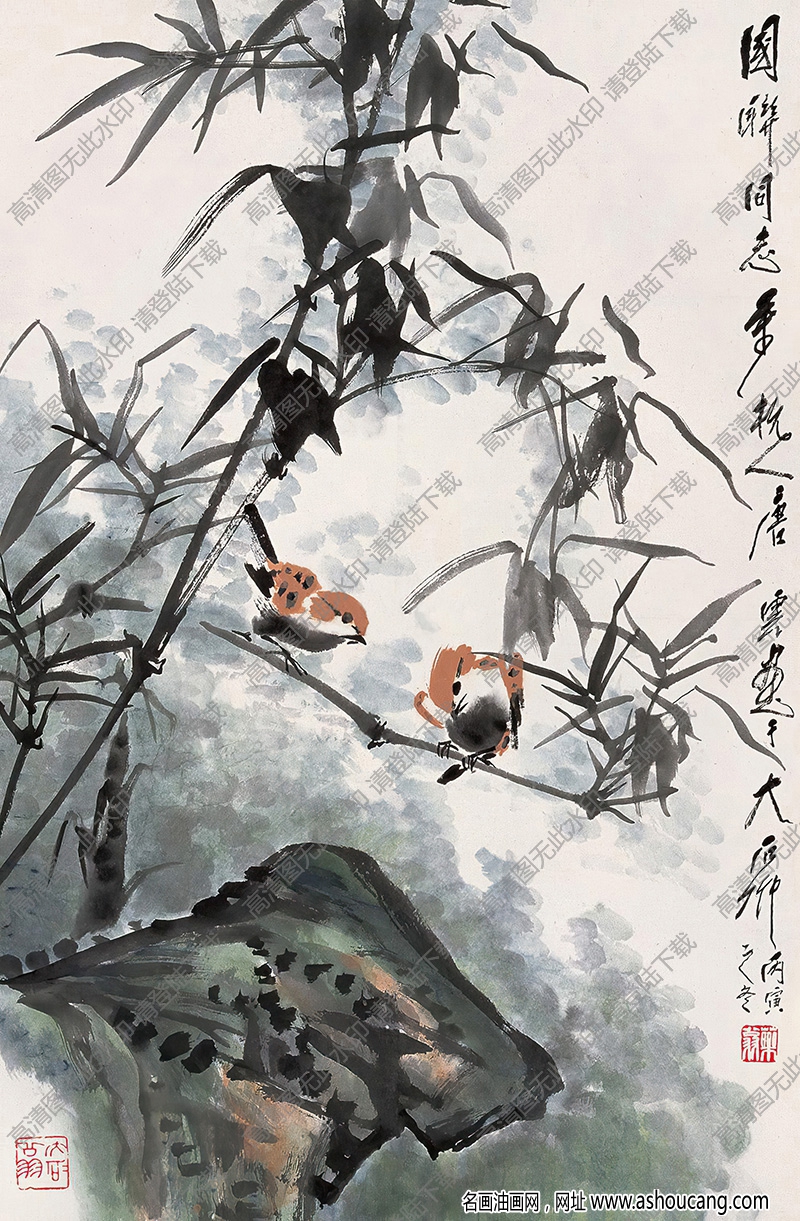 國聯同志
杭人唐雲畫于大石
丙寅
之冬
藥翁
大石
名画油画网，网址 www.ashoucang.com
高清图无此水印 请登陆下载